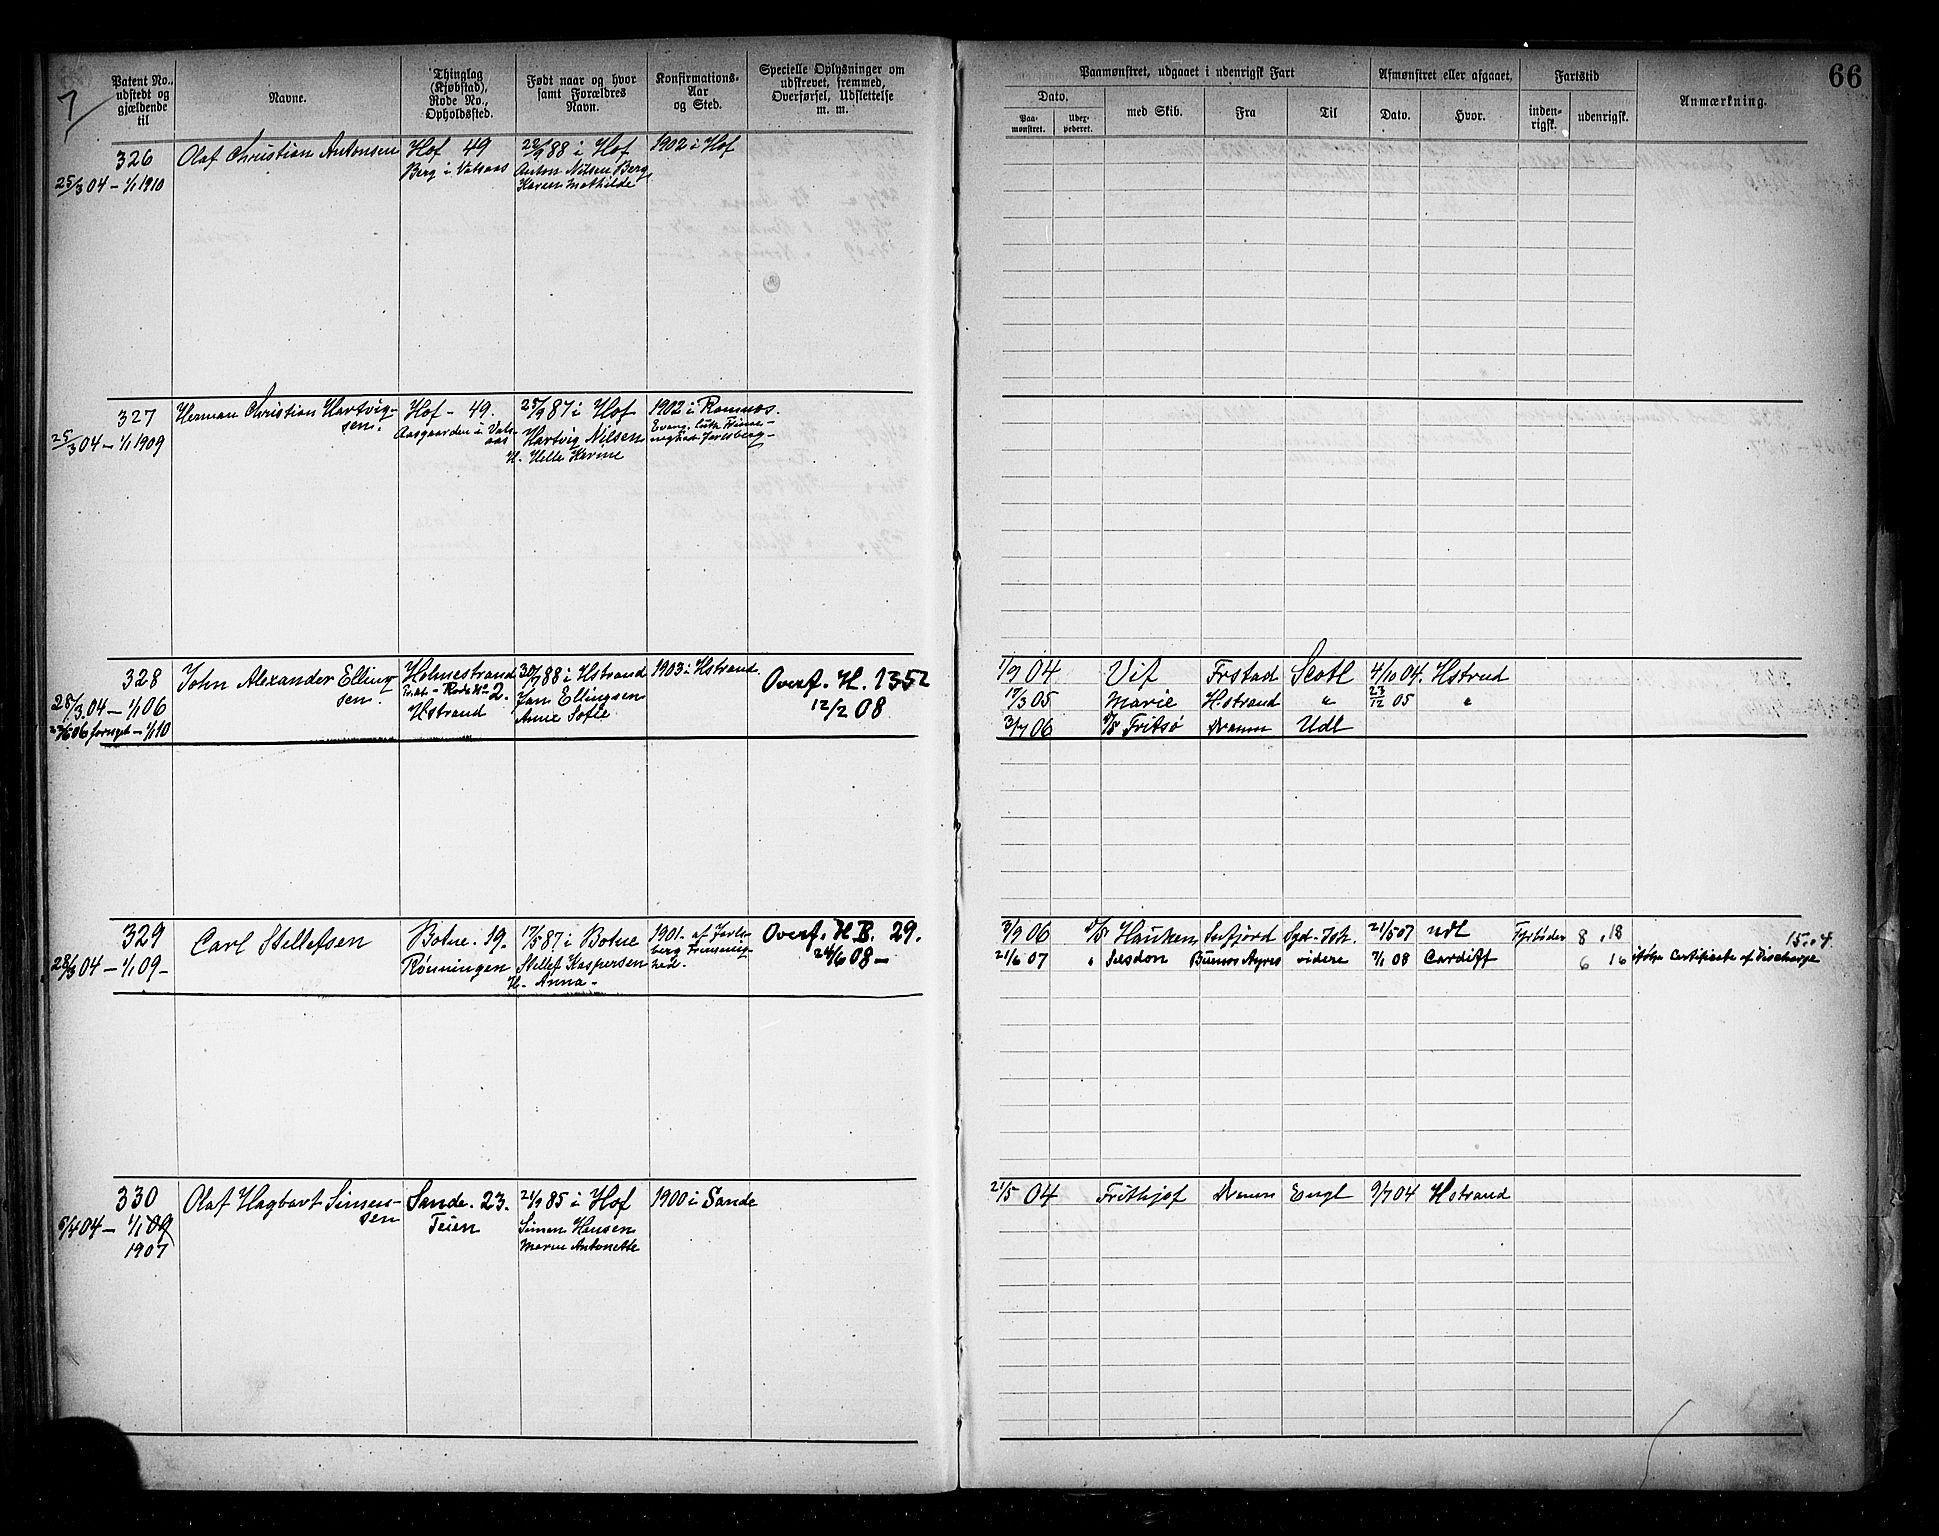 66
Patent No., udstedt og gjældende til
Navne.
Thinglag (Kjøbstad), Rode No., Opholdssted.
Født naar og hvor samt Forældres Navn.
Konfirmations- Aar og Sted.
Specielle Oplysninger om udskrevet, fremmed, Overførsel, Udslettelse m. m.
Paamønstret, udgaaet i udenrigsk Fart
Dato.
Paa- mønstret.
med Skib.
Fra
Til
Afmønstret eller afgaaet,
Dato.
Hvor.
Fartstid
inden- rigsk.
udenrigsk.
Anmærkning.
326 Olaf Christian Antonsen Hof 49 22/9 88 i Hof 1902 i Hof
25/3 04 – 1/1 1910 Berg i Vatsaas Anton Nilsen Berg
Karen Mathilde
327 Herman Christian Hartvig- Hof – 49. 25/9 87 i Hof 1902 i Ramnæs.
sen. Aasgaarden i Vats- Evang. Luth. Frime-
25/3 04 – 1/1 1909 aas Hartvig Nilsen nighed Jarlsberg –
H. Helle Karine
328 John Alexander Elling- Holmestrand 30/7 88 i Hstrand 1903 i Hstrand Overf. H. 1352 1/9 04 Vif Frstad Scotl 4/10 04. Hstrnd
sen. Rode No 2. Jan Ellingsen 12/2 08 17/3 05 Marie H.strand " 23/12 05 "
28/3 04 – 1/1 06 Hstrand Anne Sofie
fornyet – 1/1 10 3/7 06 D/S Fritsø Dramm Udl
329 Carl Stillefsen Botne. 19. 17/5 87 i Botne 1901. af Jarls- Overf. H.B. 29. 3/9 06 D/S Hauken Syd-Ish. 21/5 07 Udl 8 . 18 15.04.
28/3 04 – 1/1 09 – Rønningen Stillef Kaspersen berg Frimenig- 24/6 08 – 21/6 07 " Selsdon Buenos Ayres videre 7/1 08 Cardiff 6 16 ifølge Certificate of Discharge
H. Anna – hed.
330 Olaf Hagbart Simens- Sande. 23. 21/9 85 i Hof 1900 i Sande 21/5 04 Frithjof Dramm Engl 9/7 04 Hstrand
sen
5/4 04 – 1/1 09 Teien Simen Hansen
1907 Maren Antonette